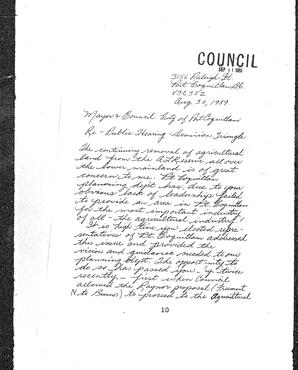 COUNCIL
SEP 11 1989
3156 Raleigh St.
Port Coquitlam BC
V3C 3J2
Aug. 30, 1989
Mayor & Council City of Pt Coquitlam
Re - Public Hearing - Dominion Triangle
The continuing removal of agricultural
land from the A.L. Reserve all over
the lower mainland is of great
concern to me. Pt. Coquitlam
planning dept. has, due to your
obvious lack of leadership failed
to provide an area in Pt Coquitlam
for the most important industry
of all - the agricultural industry!
It is high time you elected repre-
sentatives of Pt. Coquitlam addressed
this issue and provided the
vision and guidance needed to our
planning dept. The opportunity to
do so has passed you up twice
recently - first when Council
allowed the Raynor proposal (Fremont
N. to Burns) to proceed to the Agricultural
10